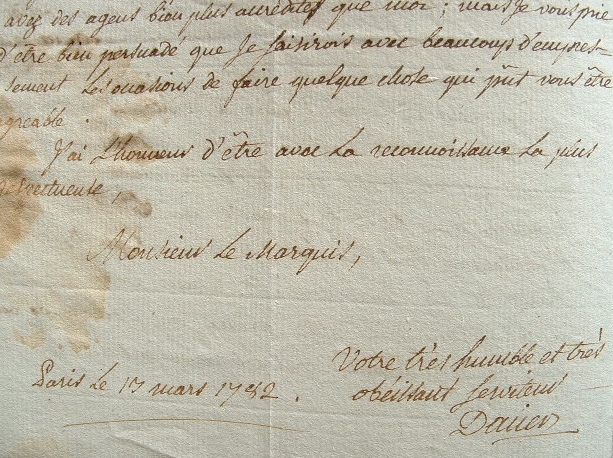 avez des agens bien plus accrédités que moi ; mais je vous prie
d'être bien persuadé que je saisirois avec beaucoup d'empres-
sement les occasions de faire quelque chose qui pût vous être
agreable .
J'ai L'honneur d'être avec La reconnoissance La plus
respectueuse,
Monsieur Le Marquis,
Votre très humble et très
obéissant serviteur
Paris Le 17 mars 1782 .